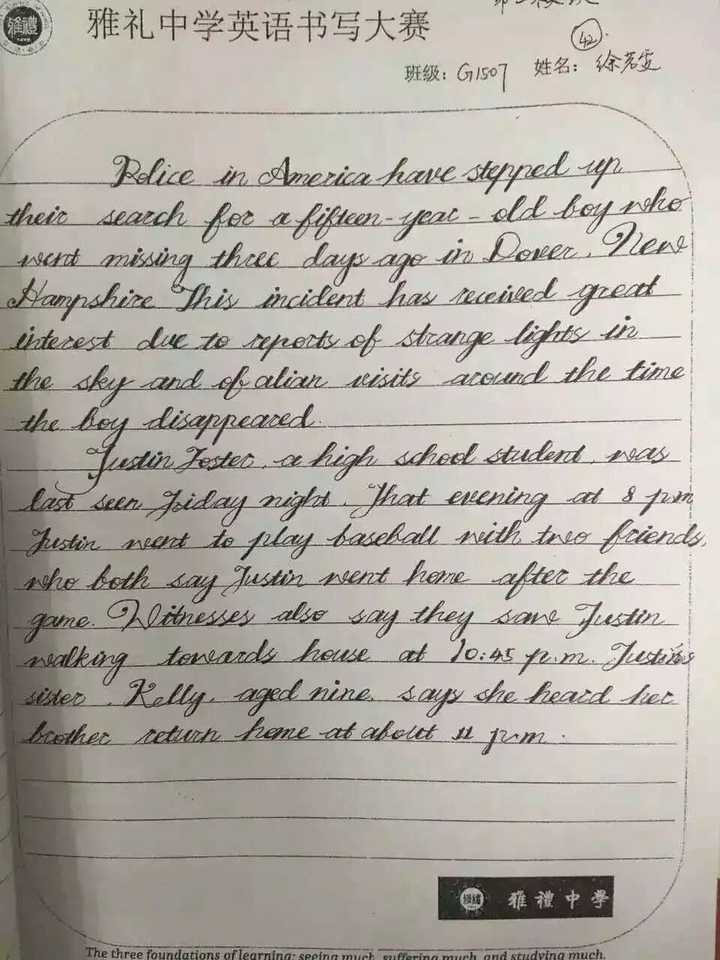 雅礼中学英语书写大赛
42
班级: G1507 姓名: 徐若雯
Police in America have stepped up
their search for a fifteen-year-old boy who
went missing three days ago in Dover, New
Hampshire This incident has received great
interest due to reports of strange lights in
the sky and of alian visits around the time
the boy disappeared.
Justin Foster, a high school student, was
last seen Friday night. That evening at 8 p.m
Justin went to play baseball with two friends,
who both say Justin went home after the
game. Witnesses also say they saw Justin
walking towards house at 10:45 p.m. Justin's
sister, Kelly, aged nine, says she heard her
brother return home at about 11 p.m.
雅禮中學
The three foundations of learning: seeing much, suffering much, and studying much.